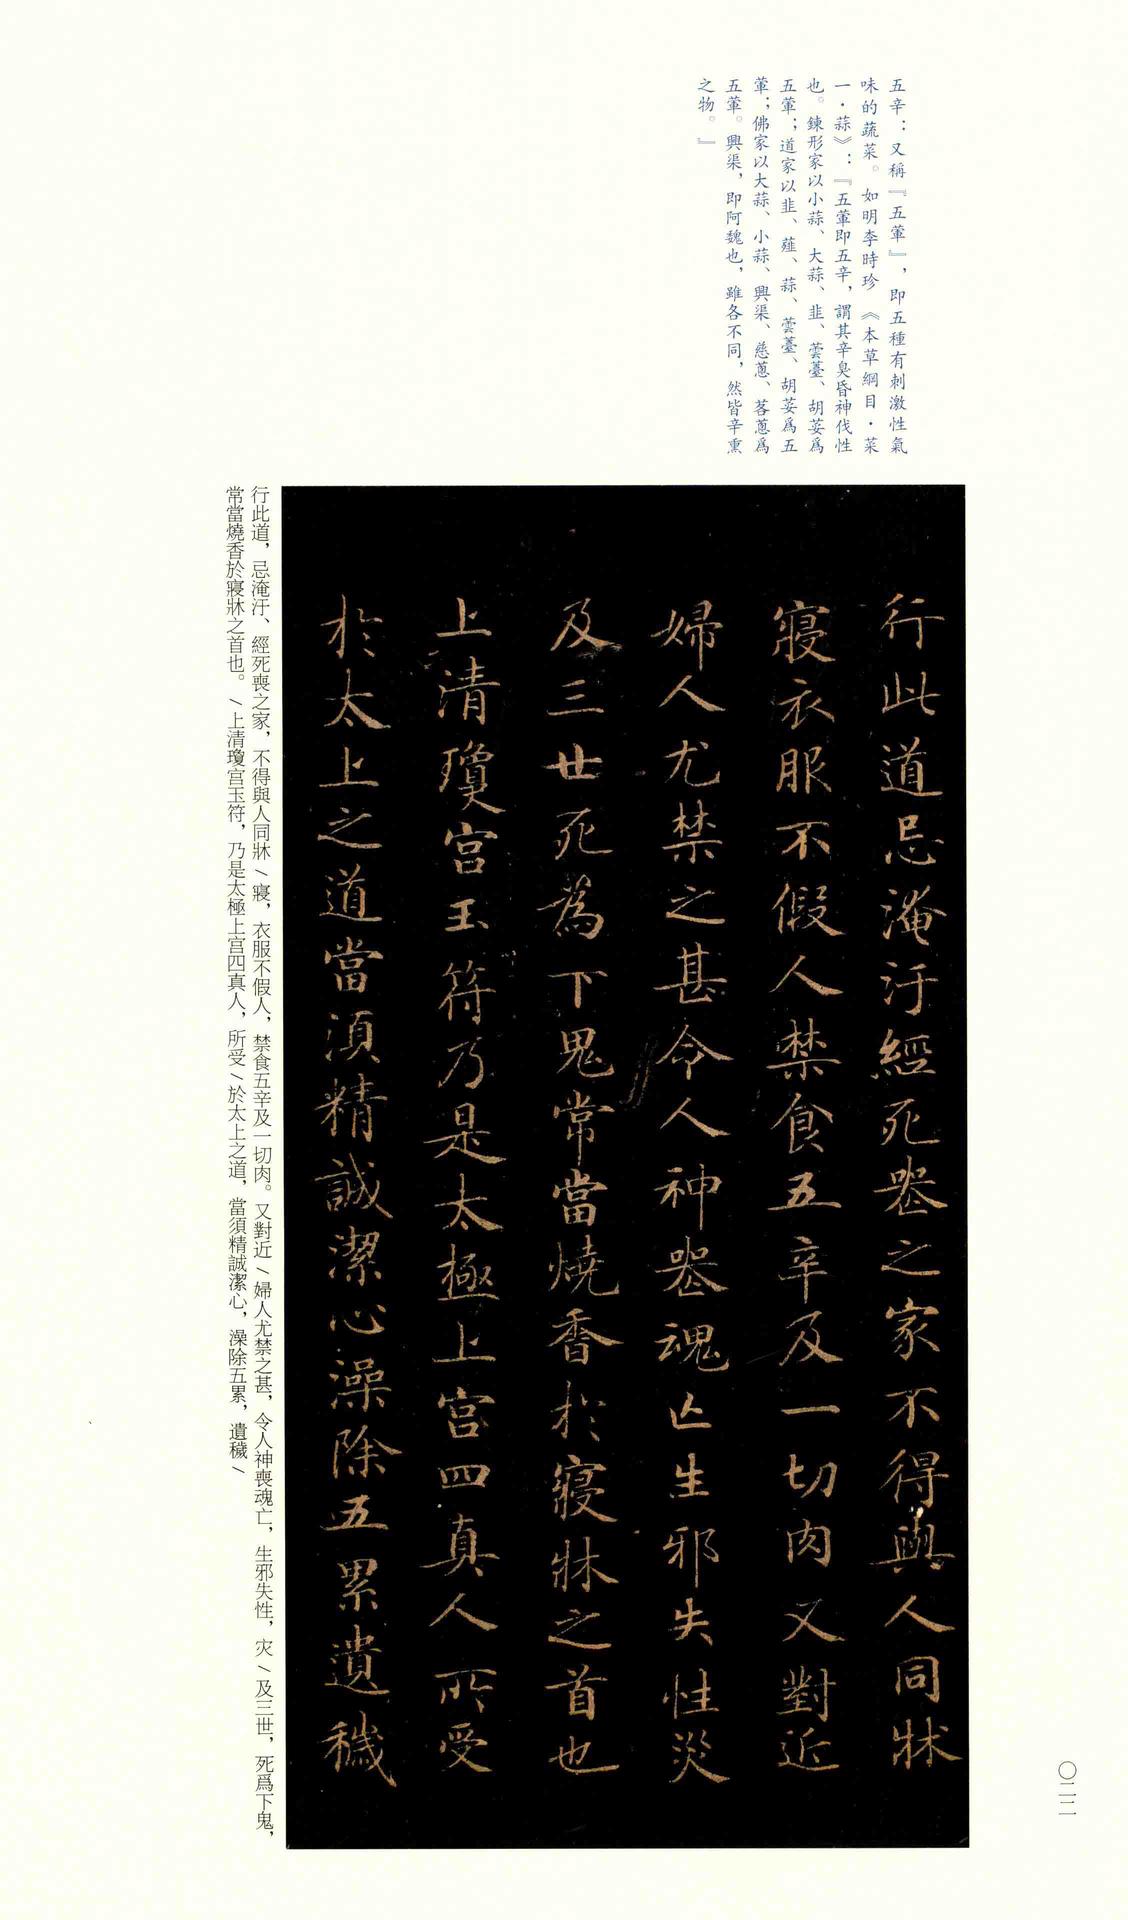 五辛：又稱『五葷』，即五種有刺激性氣
味的蔬菜。如明李時珍《本草綱目·菜
一·蒜》：『五葷即五辛，謂其辛臭昏神伐性
也。鍊形家以小蒜、大蒜、韭、蕓薹、胡荽爲
五葷；道家以韭、薤、蒜、蕓薹、胡荽爲五
葷；佛家以大蒜、小蒜、興渠、慈蔥、茖蔥爲
五葷。興渠，即阿魏也，雖各不同，然皆辛熏
之物。』
行此道忌淹汙經死喪之家不得與人同牀
寢衣服不假人禁食五辛及一切肉又對近
婦人尤禁之甚令人神喪魂亡生邪失性災
及三世死為下鬼常當燒香於寢牀之首也
上清瓊宮玉符乃是太極上宮四真人所受
於太上之道當須精誠潔心澡除五累遺穢
行此道，忌淹汙、經死喪之家，不得與人同牀\寢，衣服不假人，禁食五辛及一切肉。又對近\婦人尤禁之甚，令人神喪魂亡，生邪失性，灾\及三世，死爲下鬼，
常當燒香於寢牀之首也。\上清瓊宮玉符，乃是太極上宮四真人，所受\於太上之道，當須精誠潔心，澡除五累，遺穢\
〇二二